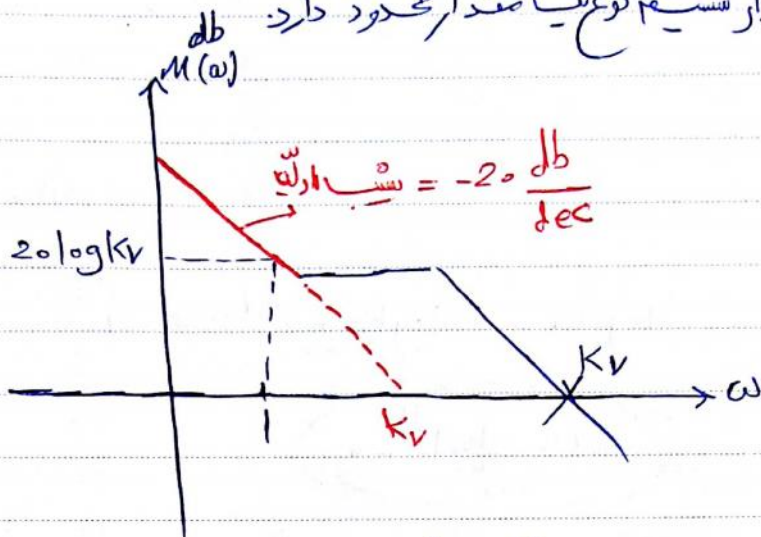 از سیستم نوع یک مقدار محدود دارد.
db
M(ω)
شیب اولیه = -20 db/dec
20 log Kv
Kv
Kv
ω
1